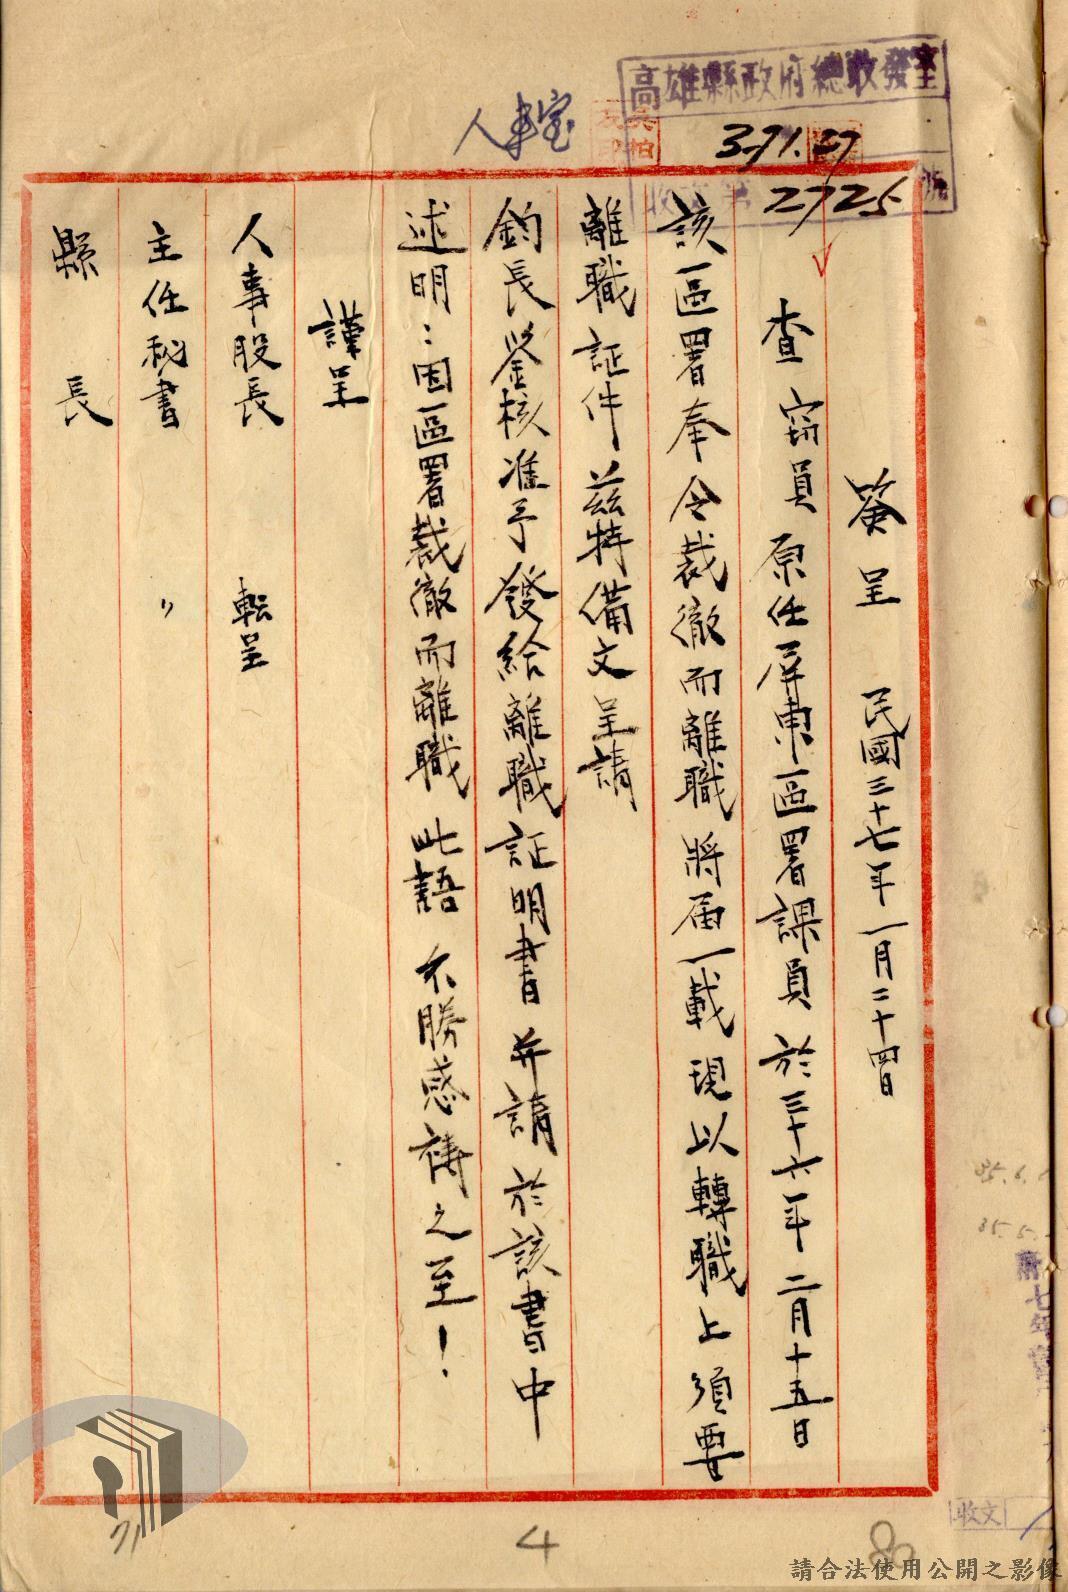 高雄縣政府總收發室
37.1.27
2725
人事室
簽呈 民國三十七年一月二十四日
查窃員原任屏東區署課員於三十六年二月十五日
該區署奉令裁徹而離職將屆一載現以轉職上須要
離職証件兹特備文呈請
鈞長鉴核准予發給離職証明書并請於該書中
述明：因區署裁徹而離職 此語 不勝感禱之至！
謹呈
人事股長 転呈
主任秘書 〃
縣 長
收文
4
請合法使用公開之影像